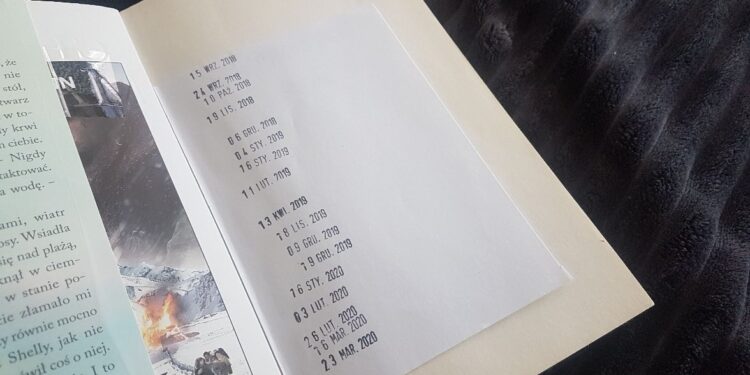 , że
nie
stół,
warz
w to-
y krwi
ciebie.
– Nigdy
taktować.
a wodę. –
ami, wiatr
osy. Wsiadła
się nad plażą,
knął w ciem-
w stanie po-
cie złamało mi
y równie mocno
Shelly, jak nie
wił coś o niej.
I to
N
15 WRZ. 2018
24 WRZ. 2018
10 PAŹ. 2018
19 LIS. 2018
06 GRU. 2018
04 STY. 2019
16 STY. 2019
11 LUT. 2019
13 KWI. 2019
18 LIS. 2019
09 GRU. 2019
19 GRU. 2019
16 STY. 2020
03 LUT. 2020
26 LUT. 2020
16 MAR. 2020
23 MAR. 2020